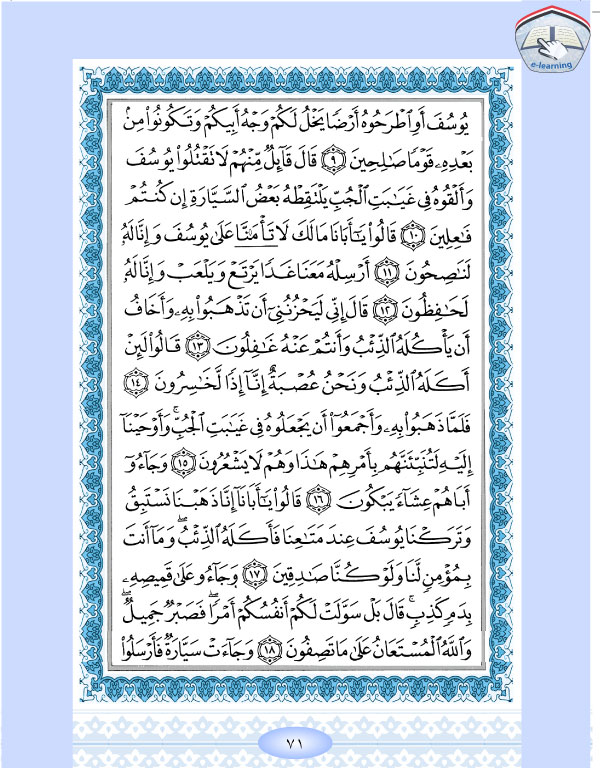 e-learning
يُوسُفَ أَوِ ٱطْرَحُوهُ أَرْضًا يَخْلُ لَكُمْ وَجْهُ أَبِيكُمْ وَتَكُونُوا۟ مِنۢ
بَعْدِهِۦ قَوْمًا صَٰلِحِينَ ﴿٩﴾ قَالَ قَآئِلٌ مِّنْهُمْ لَا تَقْتُلُوا۟ يُوسُفَ
وَأَلْقُوهُ فِى غَيَٰبَتِ ٱلْجُبِّ يَلْتَقِطْهُ بَعْضُ ٱلسَّيَّارَةِ إِن كُنتُمْ
فَٰعِلِينَ ﴿١٠﴾ قَالُوا۟ يَٰٓأَبَانَا مَالَكَ لَا تَأْمَ۫نَّا عَلَىٰ يُوسُفَ وَإِنَّا لَهُۥ
لَنَٰصِحُونَ ﴿١١﴾ أَرْسِلْهُ مَعَنَا غَدًا يَرْتَعْ وَيَلْعَبْ وَإِنَّا لَهُۥ
لَحَٰفِظُونَ ﴿١٢﴾ قَالَ إِنِّى لَيَحْزُنُنِىٓ أَن تَذْهَبُوا۟ بِهِۦ وَأَخَافُ
أَن يَأْكُلَهُ ٱلذِّئْبُ وَأَنتُمْ عَنْهُ غَٰفِلُونَ ﴿١٣﴾ قَالُوا۟ لَئِنْ
أَكَلَهُ ٱلذِّئْبُ وَنَحْنُ عُصْبَةٌ إِنَّآ إِذًا لَّخَٰسِرُونَ ﴿١٤﴾
فَلَمَّا ذَهَبُوا۟ بِهِۦ وَأَجْمَعُوٓا۟ أَن يَجْعَلُوهُ فِى غَيَٰبَتِ ٱلْجُبِّ ۚ وَأَوْحَيْنَآ
إِلَيْهِ لَتُنَبِّئَنَّهُم بِأَمْرِهِمْ هَٰذَا وَهُمْ لَا يَشْعُرُونَ ﴿١٥﴾ وَجَآءُوٓ
أَبَاهُمْ عِشَآءً يَبْكُونَ ﴿١٦﴾ قَالُوا۟ يَٰٓأَبَانَآ إِنَّا ذَهَبْنَا نَسْتَبِقُ
وَتَرَكْنَا يُوسُفَ عِندَ مَتَٰعِنَا فَأَكَلَهُ ٱلذِّئْبُ ۖ وَمَآ أَنتَ
بِمُؤْمِنٍ لَّنَا وَلَوْ كُنَّا صَٰدِقِينَ ﴿١٧﴾ وَجَآءُو عَلَىٰ قَمِيصِهِۦ
بِدَمٍ كَذِبٍ ۚ قَالَ بَلْ سَوَّلَتْ لَكُمْ أَنفُسُكُمْ أَمْرًا ۖ فَصَبْرٌ جَمِيلٌ ۖ
وَٱللَّهُ ٱلْمُسْتَعَانُ عَلَىٰ مَا تَصِفُونَ ﴿١٨﴾ وَجَآءَتْ سَيَّارَةٌ فَأَرْسَلُوا۟
٧١